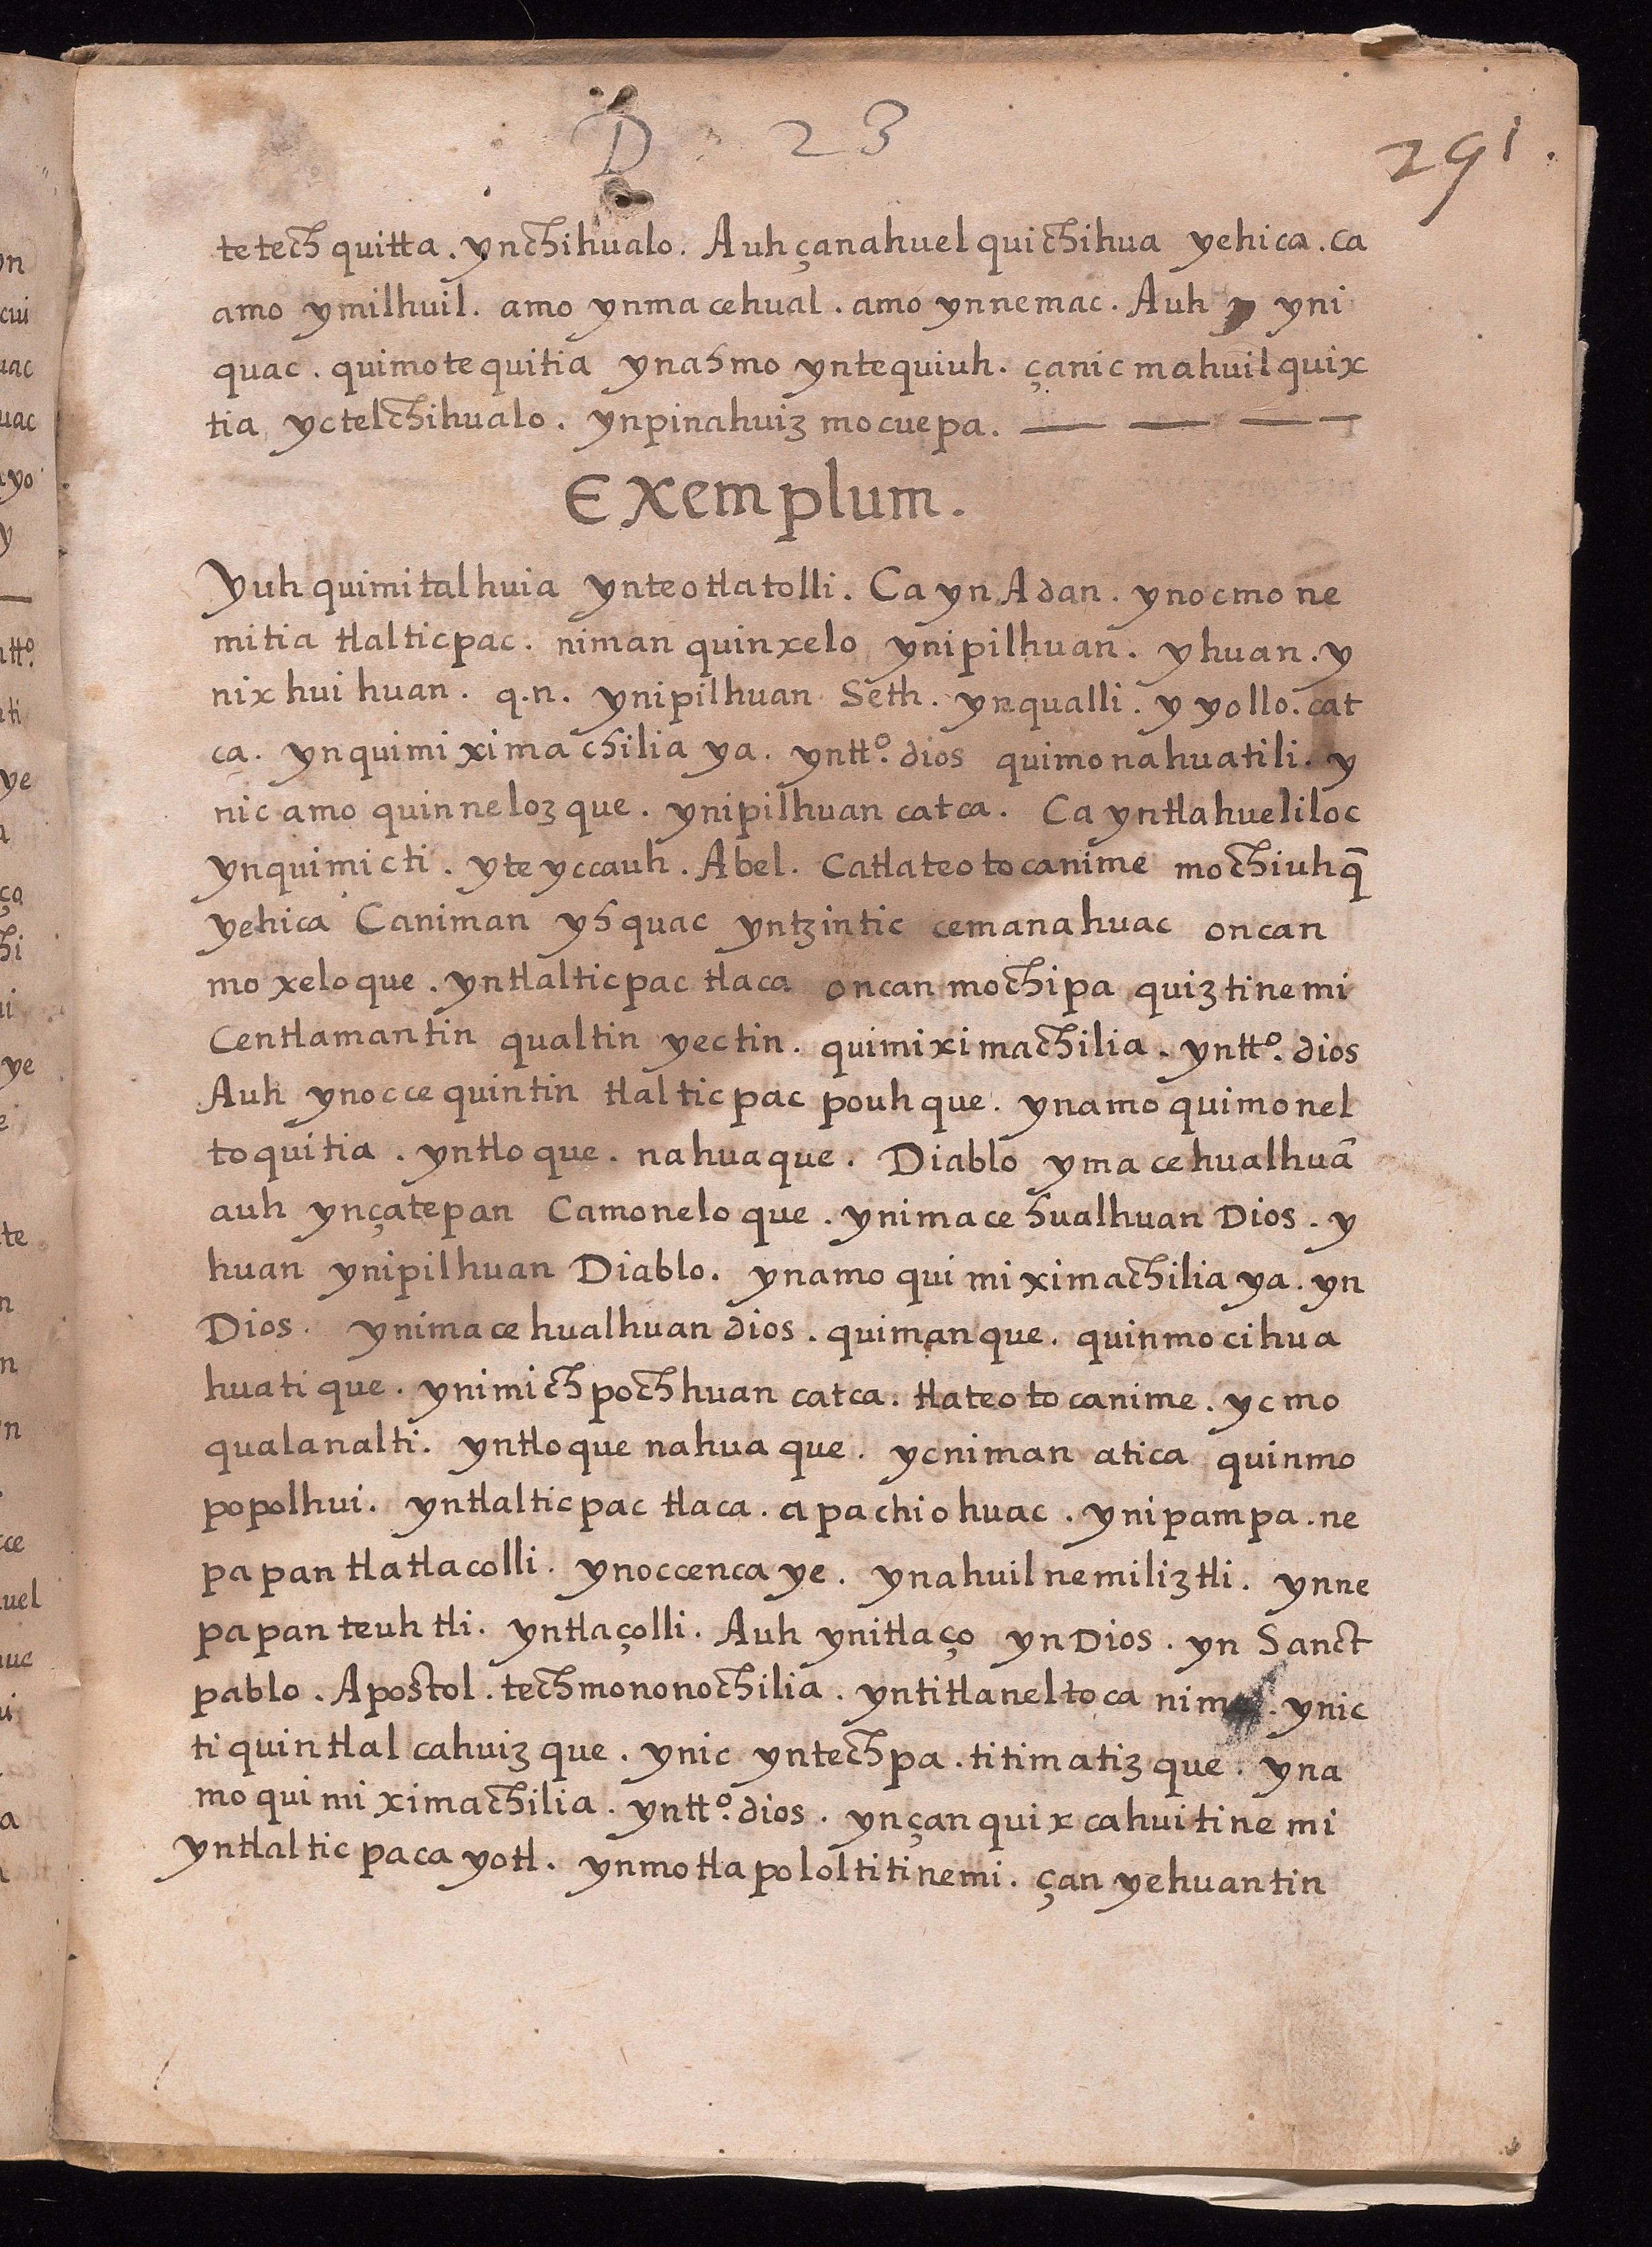 D 23
291.
tetech quitta. ynchihualo. Auh çanahuel quichihua yehica. ca
amo ymilhuil. amo ynmacehual. amo ynnemac. Auh yni
quac. quimotequitia ynahmo yntequiuh. çanic mahuilquix
tia yctelchihualo. ynpinahuiz mocuepa.
Exemplum.
Yuh quimitalhuia ynteotlatolli. Ca yn Adan. ynocmo ne
mitia tlalticpac. niman quinxelo ynipilhuan. yhuan. y
nixhuihuan. q.n. ynipilhuan Seth. ynqualli. y yollo. cat
ca. ynquimiximachiliaya. yntt.º dios quimonahuatili. y
nic amo quinnelozque. ynipilhuan catca. Ca yntlahueliloc
ynquimicti. yteyccauh. Abel. Catlateotocanime mochiuhq̃
yehica Caniman yhquac yntzintic cemanahuac oncan
moxeloque. yntlalticpac tlaca oncan mochipa quiztinemi
Centlamantin qualtin yectin. quimiximachilia. yntt.º dios
Auh ynoccequintin tlalticpac pouhque. ynamo quimonel
toquitia. yntloque. nahuaque. Diablo ymacehualhuã
auh ynçatepan Camoneloque. ynimacehualhuan Dios. y
huan ynipilhuan Diablo. ynamo quimiximachiliaya. yn
Dios. ynimacehualhuan dios. quimanque. quinmocihua
huatique. ynimichpochhuan catca. tlateotocanime. yc mo
qualanalti. yntloque nahuaque. ycniman atica quinmo
popolhui. yntlalticpac tlaca. apachiohuac. ynipampa. ne
papan tlatlacolli. ynoccencaye. ynahuilnemiliztli. ynne
papan teuhtli. yntlaçolli. Auh ynitlaço yn Dios. yn Sanct
pablo. Apostol. techmononochilia. yntitlaneltoca . ynic
tiquintlalcahuizque. ynic yntechpa. titimatizque. yna
mo quimiximachilia. yntt.º dios. ynçan quixcahuitinemi
yntlalticpacayotl. ynmotlapololtitinemi. çan yehuantin